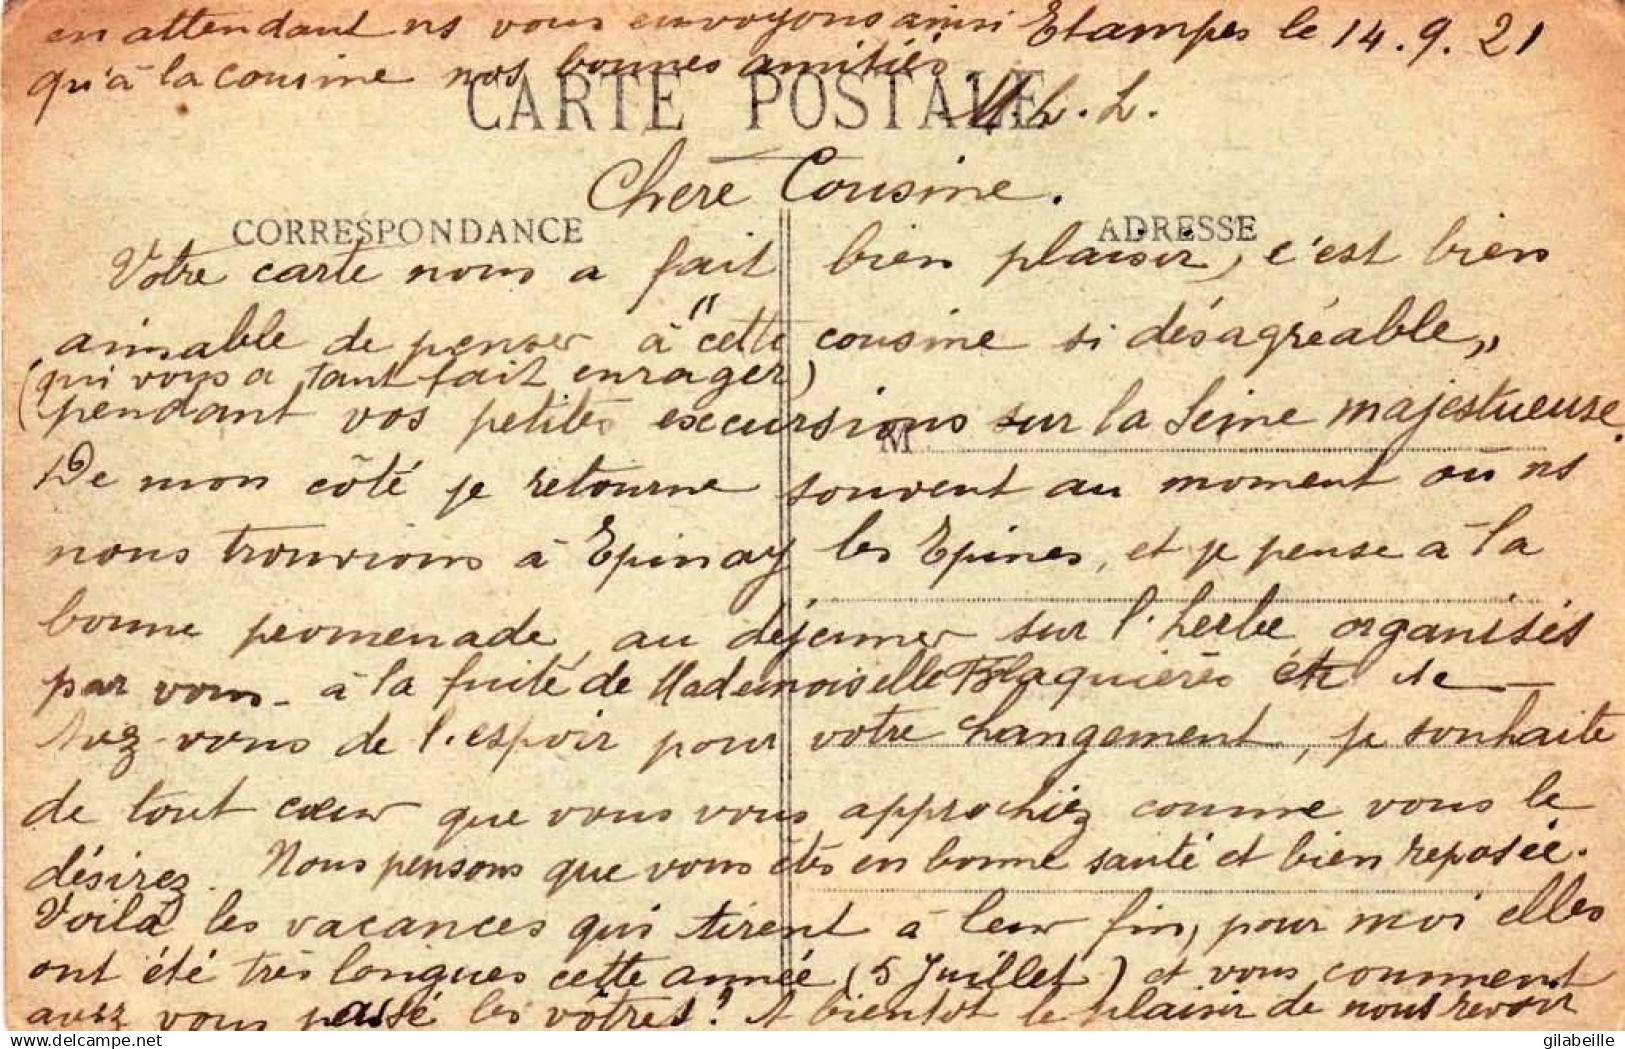 en attendant ns vous envoyons ainsi Etampes le 14.9.21
qu'à la cousine nos bonnes amitiés
CARTE POSTALE
M.L.L.
Chère Cousine.
CORRESPONDANCE
ADRESSE
Votre carte nous a fait bien plaisir, c'est bien
aimable de penser à "cette cousine si désagréable„
(qui vous a tant fait enrager)
pendant vos petites excursions sur la Seine majestueuse.
M
De mon côté je retourne souvent au moment où ns
nous trouvions à Epinay les Epines, et je pense à la
bonne promenade, au déjeuner sur l'herbe organisés
par vous - à la fuite de Mademoiselle Blaquières etc
Avez-vous de l'espoir pour votre changement, je souhaite
de tout cœur que vous vous approchiez comme vous le
désirez. Nous pensons que vous êtes en bonne santé et bien reposée.
Voilà les vacances qui tirent à leur fin, pour moi elles
ont été très longues cette année (5 Juillet) et vous comment
avez vous passé les vôtres? A bientôt le plaisir de nous revoir
gilabeille
www.delcampe.net